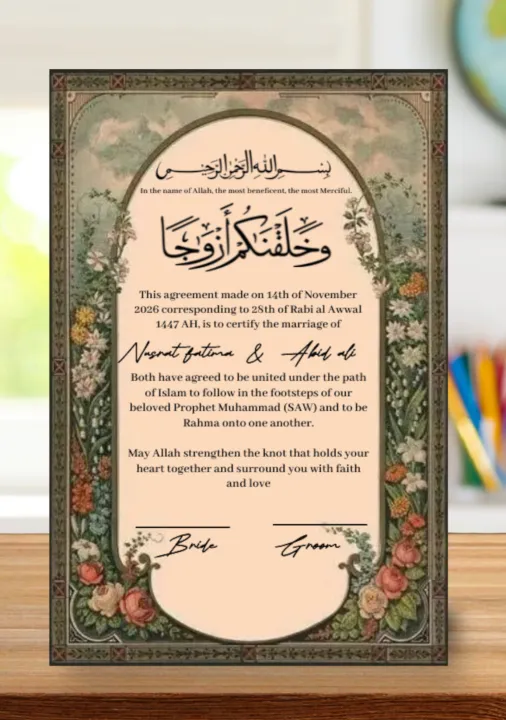 بسم الله الرحمن الرحيم
In the name of Allah, the most beneficent, the most Merciful.
وَخَلَقْنَاكُمْ أَزْوَاجًا
This agreement made on 14th of November
2026 corresponding to 28th of Rabi al Awwal
1447 AH, is to certify the marriage of
Nasrat fatima & Abid ali
Both have agreed to be united under the path
of Islam to follow in the footsteps of our
beloved Prophet Muhammad (SAW) and to be
Rahma onto one another.
May Allah strengthen the knot that holds your
heart together and surround you with faith
and love
Bride Groom